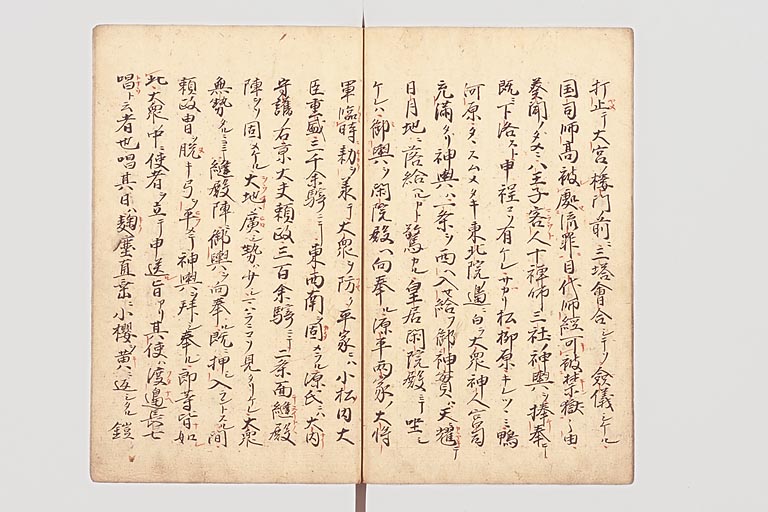 打止テ大宮樓門前ニ三塔會合シテソ僉儀シケル
国司師高被處流罪目代師經可被禁獄之由
奏聞ノタメニハ王子客人十禅師三社ノ神輿ヲ捧奉テ
既ニ下洛スト申程コソ有ケレサカリ松柳原キレツヽミ鴨
河原タヽスムメタヽキ東北院邊ニ白大衆神人宮司
充満タリ神輿ハ一条ヲ西ヘ入セ給フ御神寳天耀テ
日月地ニ落給ヘルカト驚カル皇居閑院殿ニテ坐シ
ケレハ御輿ヲ閑院殿ヘ向奉ル源平両家ノ大将
軍臨時勅ヲ承テ大衆ヲ防ク平家ニハ小松内大
臣重盛三千余騎ニテ東西南ヲ固メラル源氏ニハ大内
守護ノ右京大夫頼政三百余騎ニテ二条面縫殿
陣ヲソ固メケル大地ハ廣シ勢ハ少シ ハラニコソ見タリケレ大衆
無勢タルニヨテ縫殿陣ヨリ御輿ヲ向奉ル既押シ入ラントスル間
頼政冑ヲ脱キ弓ヲ平メテ神輿ヲ拜シ奉ル郎等皆如
此大衆中ニ使者ヲ立テ申送旨アリ其使ハ渡邉長七
唱ト云者也唱其日ハ麹塵直垂ニ小櫻ヲ黄ニ返シタル鎧